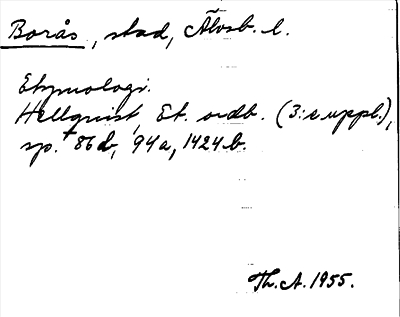 Borås, stad, Älvsb. l.
Etymologi.
Hellquist, Et. ordb. (3:e uppl.),
sp. 86 b, 94a, 1424 b.
Th. A. 1955.